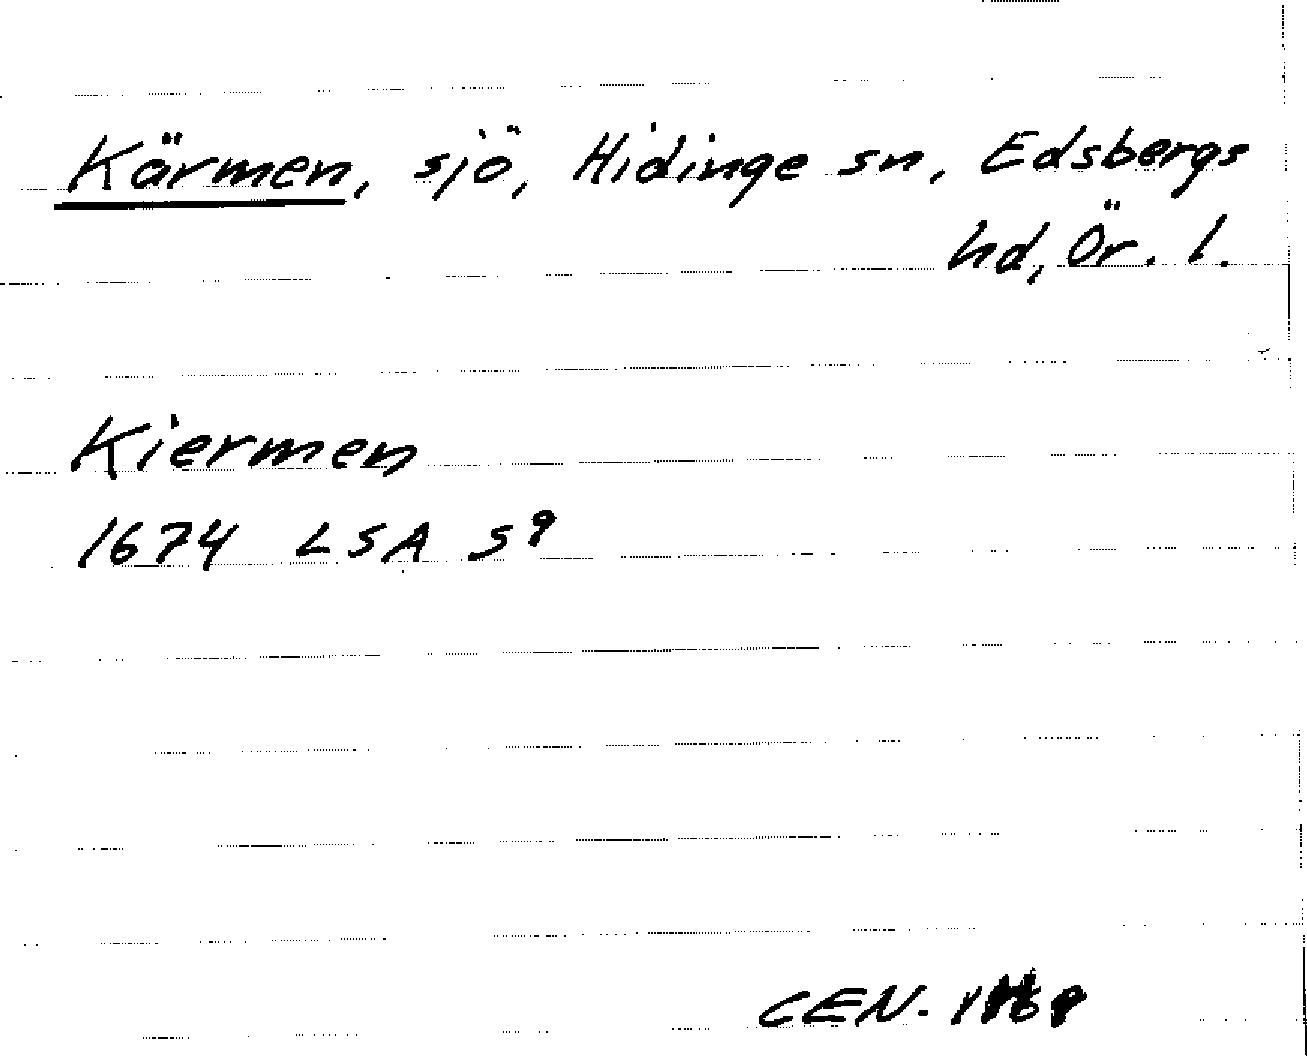 Kärmen, sjö, Hidinge sn, Edsbergs
hd, Ör. l.
Kiermen
1674 LSA S9
CEN.